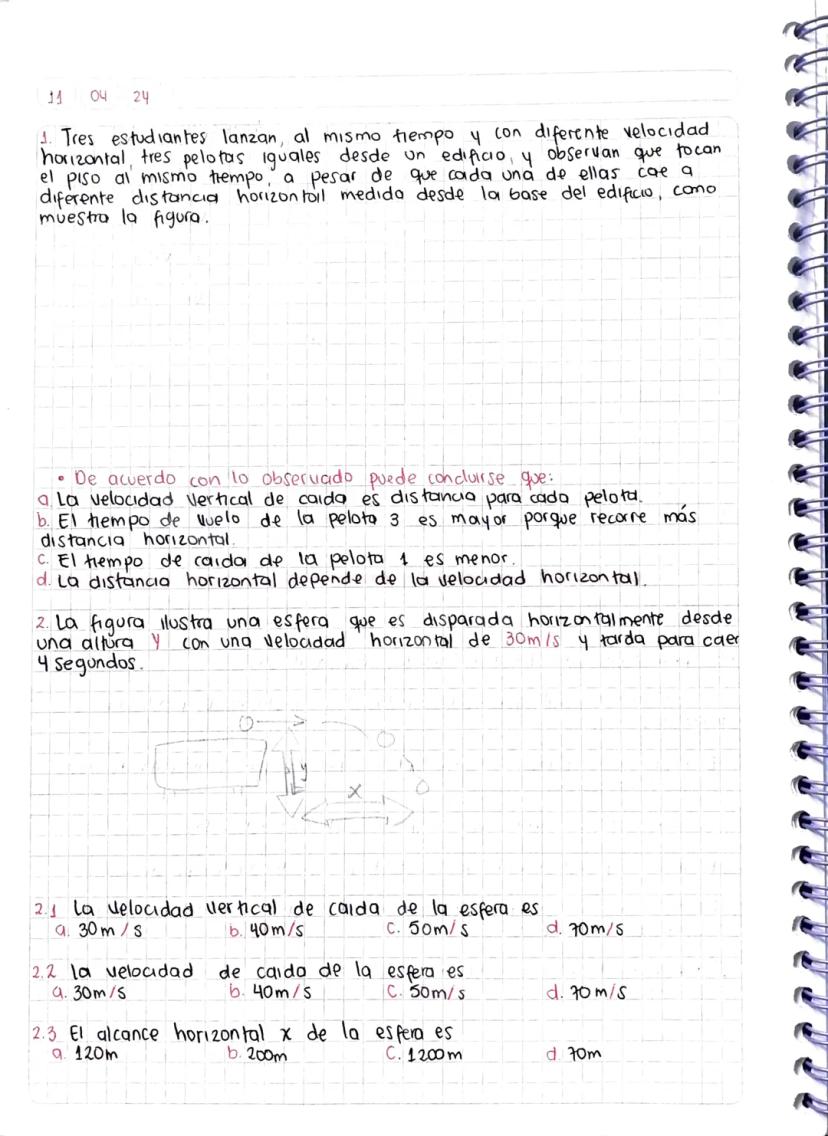 11 04 24
1. Tres estudiantes lanzan, al mismo tiempo y con diferente velocidad
horizontal, tres pelotas iguales desde un edificio, y observan que tocan
el piso al mismo tiempo, a pesar de que cada una de ellas cae a
diferente distancia horizontal medida desde la base del edificio, como
muestra la figura.
• De acuerdo con lo observado puede concluirse que:
a. La velocidad vertical de caida es distancia para cada pelota.
b. El tiempo de vuelo de la pelota 3 es mayor porque recorre más
distancia horizontal.
c. El tiempo de caida de la pelota 1 es menor.
d. La distancia horizontal depende de la velocidad horizontal.
2. La figura ilustra una esfera que es disparada horizontalmente desde
una altura y con una velocidad horizontal de 30m/s y tarda para caer
4 segundos.
y
x
2.1 La velocidad vertical de caida de la esfera es
a. 30m/s b. 40m/s c. 50m/s d. 70m/s
2.2 la velocidad de caida de la esfera es
a. 30m/s b. 40m/s c. 50m/s d. 70m/s
2.3 El alcance horizontal x de la esfera es
a. 120m b. 200m c. 1200m d. 70m